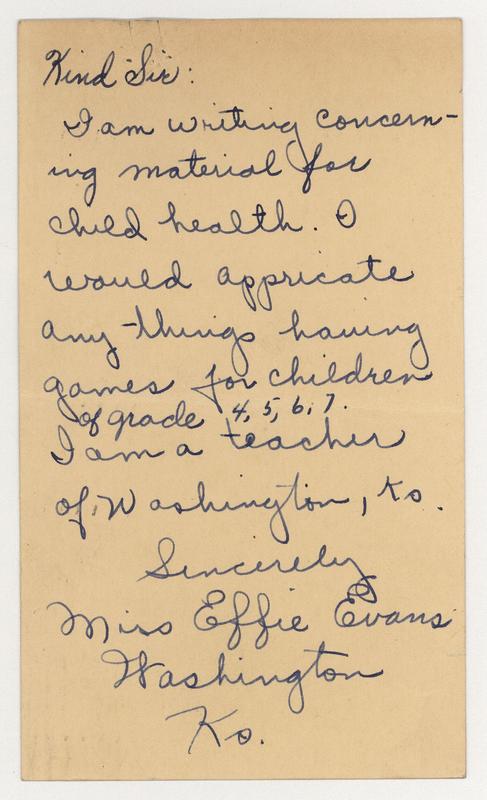 Kind Sir:
I am writing concern-
ing material for
child health. I
would appricate
any-things having
games for children
of grade 4, 5, 6, 7.
I am a teacher
of Washington, Ks.
Sincerely
Miss Effie Evans
Washington
Ks.